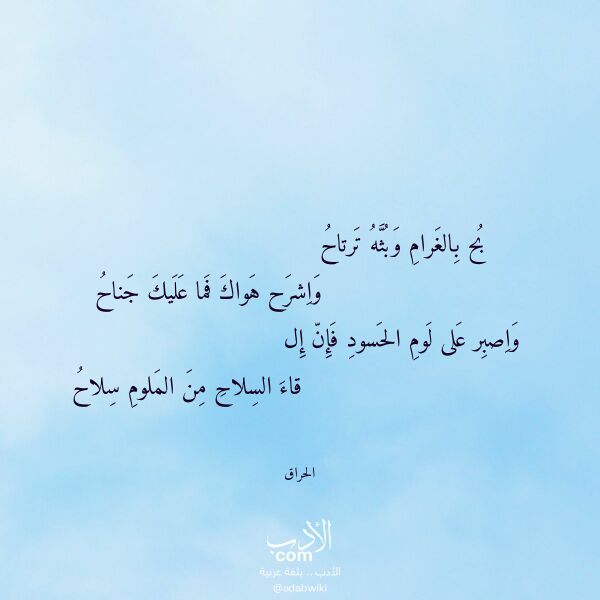 بُح بِالغَرامِ وَبُثَّهُ تَرتاحُ
وَاِشرَح هَواكَ فَما عَلَيكَ جَناحُ
وَاِصبِر عَلى لَومِ الحَسودِ فَإِنّ إِل
قاءَ السِلاحِ مِنَ المَلومِ سِلاحُ
الحراق
الأدب
com
الأدب .. بلغة عربية
@adabwiki